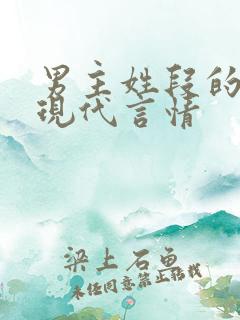 男主姓段的
现代言情
梁上石鱼
未经同意禁止转载